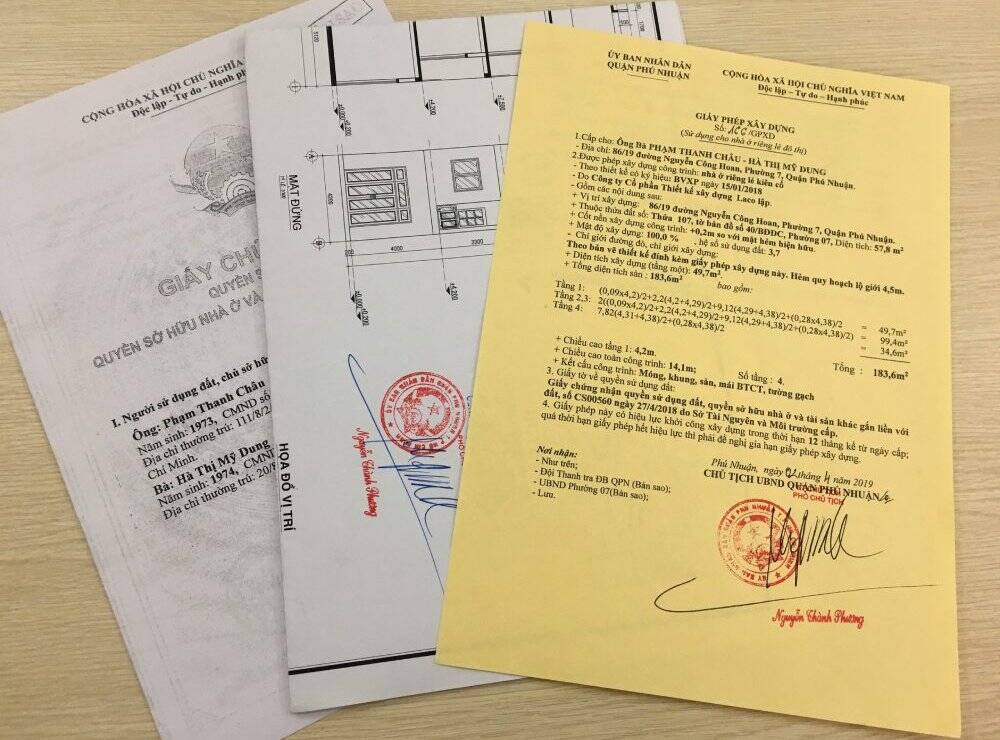 CỘNG HÒA XÃ HỘI CHỦ NGHĨA
Độc lập – Tự do – Hạnh
GIẤY CH
QUYỀN
QUYỀN SỞ HỮU NHÀ Ở VÀ
I. Người sử dụng đất, chủ sở h
Ông: Phạm Thanh Châu
Năm sinh: 1973, CMND số
Địa chỉ thường trú: 111/8/2
Chí Minh
Bà: Hà Thị Mỹ Dung
Năm sinh: 1974, CMND
Địa chỉ thường trú: 20/8
MẶT ĐỨNG
4000
3000
HỌA ĐỒ VỊ TRÍ
Nguyễn Thành Phương
ỦY BAN NHÂN DÂN
QUẬN PHÚ NHUẬN
CỘNG HÒA XÃ HỘI CHỦ NGHĨA VIỆT NAM
Độc lập – Tự do – Hạnh phúc
GIẤY PHÉP XÂY DỰNG
Số: /GPXD
(Sử dụng cho nhà ở riêng lẻ đô thị)
1.Cấp cho: Ông Bà PHẠM THANH CHÂU - HÀ THỊ MỸ DUNG
- Địa chỉ: 86/19 đường Nguyễn Công Hoan, Phường 7, Quận Phú Nhuận.
2.Được phép xây dựng công trình: nhà ở riêng lẻ kiên cố
- Theo thiết kế có ký hiệu: BVXP ngày 15/01/2018
- Do Công ty Cổ phần Thiết kế xây dựng Laco lập.
- Gồm các nội dung sau:
+ Vị trí xây dựng: 86/19 đường Nguyễn Công Hoan, Phường 7, Quận Phú Nhuận.
+ Thuộc thửa đất số: Thửa 107, tờ bản đồ số 40/BĐDC, Phường 07, Diện tích: 57,8 m²
+ Cốt nền xây dựng công trình: +0,2m so với mặt hẻm hiện hữu.
+ Mật độ xây dựng: 100,0 % , hệ số sử dụng đất: 3,7
- Chỉ giới đường đỏ, chỉ giới xây dựng:
Theo bản vẽ thiết kế đính kèm giấy phép xây dựng này. Hẻm quy hoạch lộ giới 4,5m.
+ Diện tích xây dựng (tầng một): 49,7m².
+ Tổng diện tích sàn : 183,6m² bao gồm:
Tầng 1: (0,09x4,2)/2+2,2(4,2+4,29)/2+9,12(4,29+4,38)/2+(0,28x4,38)/2 = 49,7m²
Tầng 2,3: 2((0,09x4,2)/2+2,2(4,2+4,29)/2+9,12(4,29+4,38)/2+(0,28x4,38)/2) = 99,4m²
Tầng 4: 7,82(4,31+4,38)/2+(0,28x4,38)/2 = 34,6m²
Tổng : 183,6m²
+ Chiều cao tầng 1: 4,2m.
+ Chiều cao toàn công trình: 14,1m; Số tầng : 4.
+ Kết cấu công trình: Móng, khung, sàn, mái BTCT, tường gạch
3. Giấy tờ về quyền sử dụng đất:
Giấy chứng nhận quyền sử dụng đất, quyền sở hữu nhà ở và tài sản khác gắn liền với
đất, số CS00560 ngày 27/4/2018 do Sở Tài Nguyên và Môi trường cấp.
4. Giấy phép này có hiệu lực khởi công xây dựng trong thời hạn 12 tháng kể từ ngày cấp;
quá thời hạn giấy phép hết hiệu lực thì phải đề nghị gia hạn giấy phép xây dựng.
Nơi nhận:
- Như trên;
- Đội Thanh tra ĐB QPN (Bản sao);
- UBND Phường 07(Bản sao);
- Lưu.
Phú Nhuận, ngày 02 tháng 4 năm 2019
CHỦ TỊCH UBND QUẬN PHÚ NHUẬN
PHÓ CHỦ TỊCH
Nguyễn Thành Phương